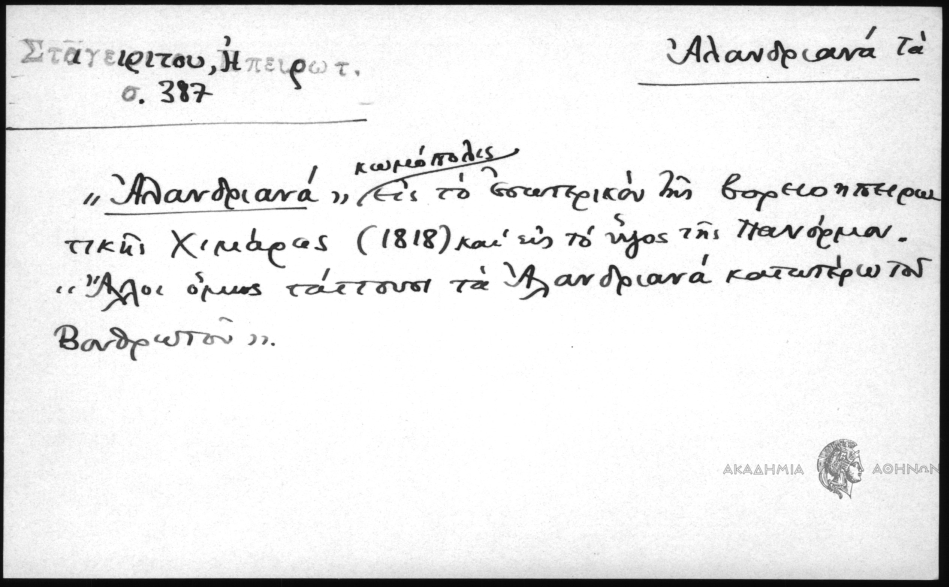 Σταγειρίτου, Ἠπειρωτ.
σ. 387
Ἀλανδριανά τὰ
κωμόπολις
„Ἀλανδριανά” εἰς τὸ ἐσωτερικὸν τῆς βορειοηπειρω
τικῆς Χιμάρας (1818) κατ' εἰς τὸ ὕψος τῆς Πανόρμου.
„Ἄλλοι ὅμως τάττουσι τὰ Ἀλανδριανά κατωτέρω τοῦ
Βουθρωτοῦ”.
ΑΚΑΔΗΜΙΑ ΑΘΗΝΩΝ